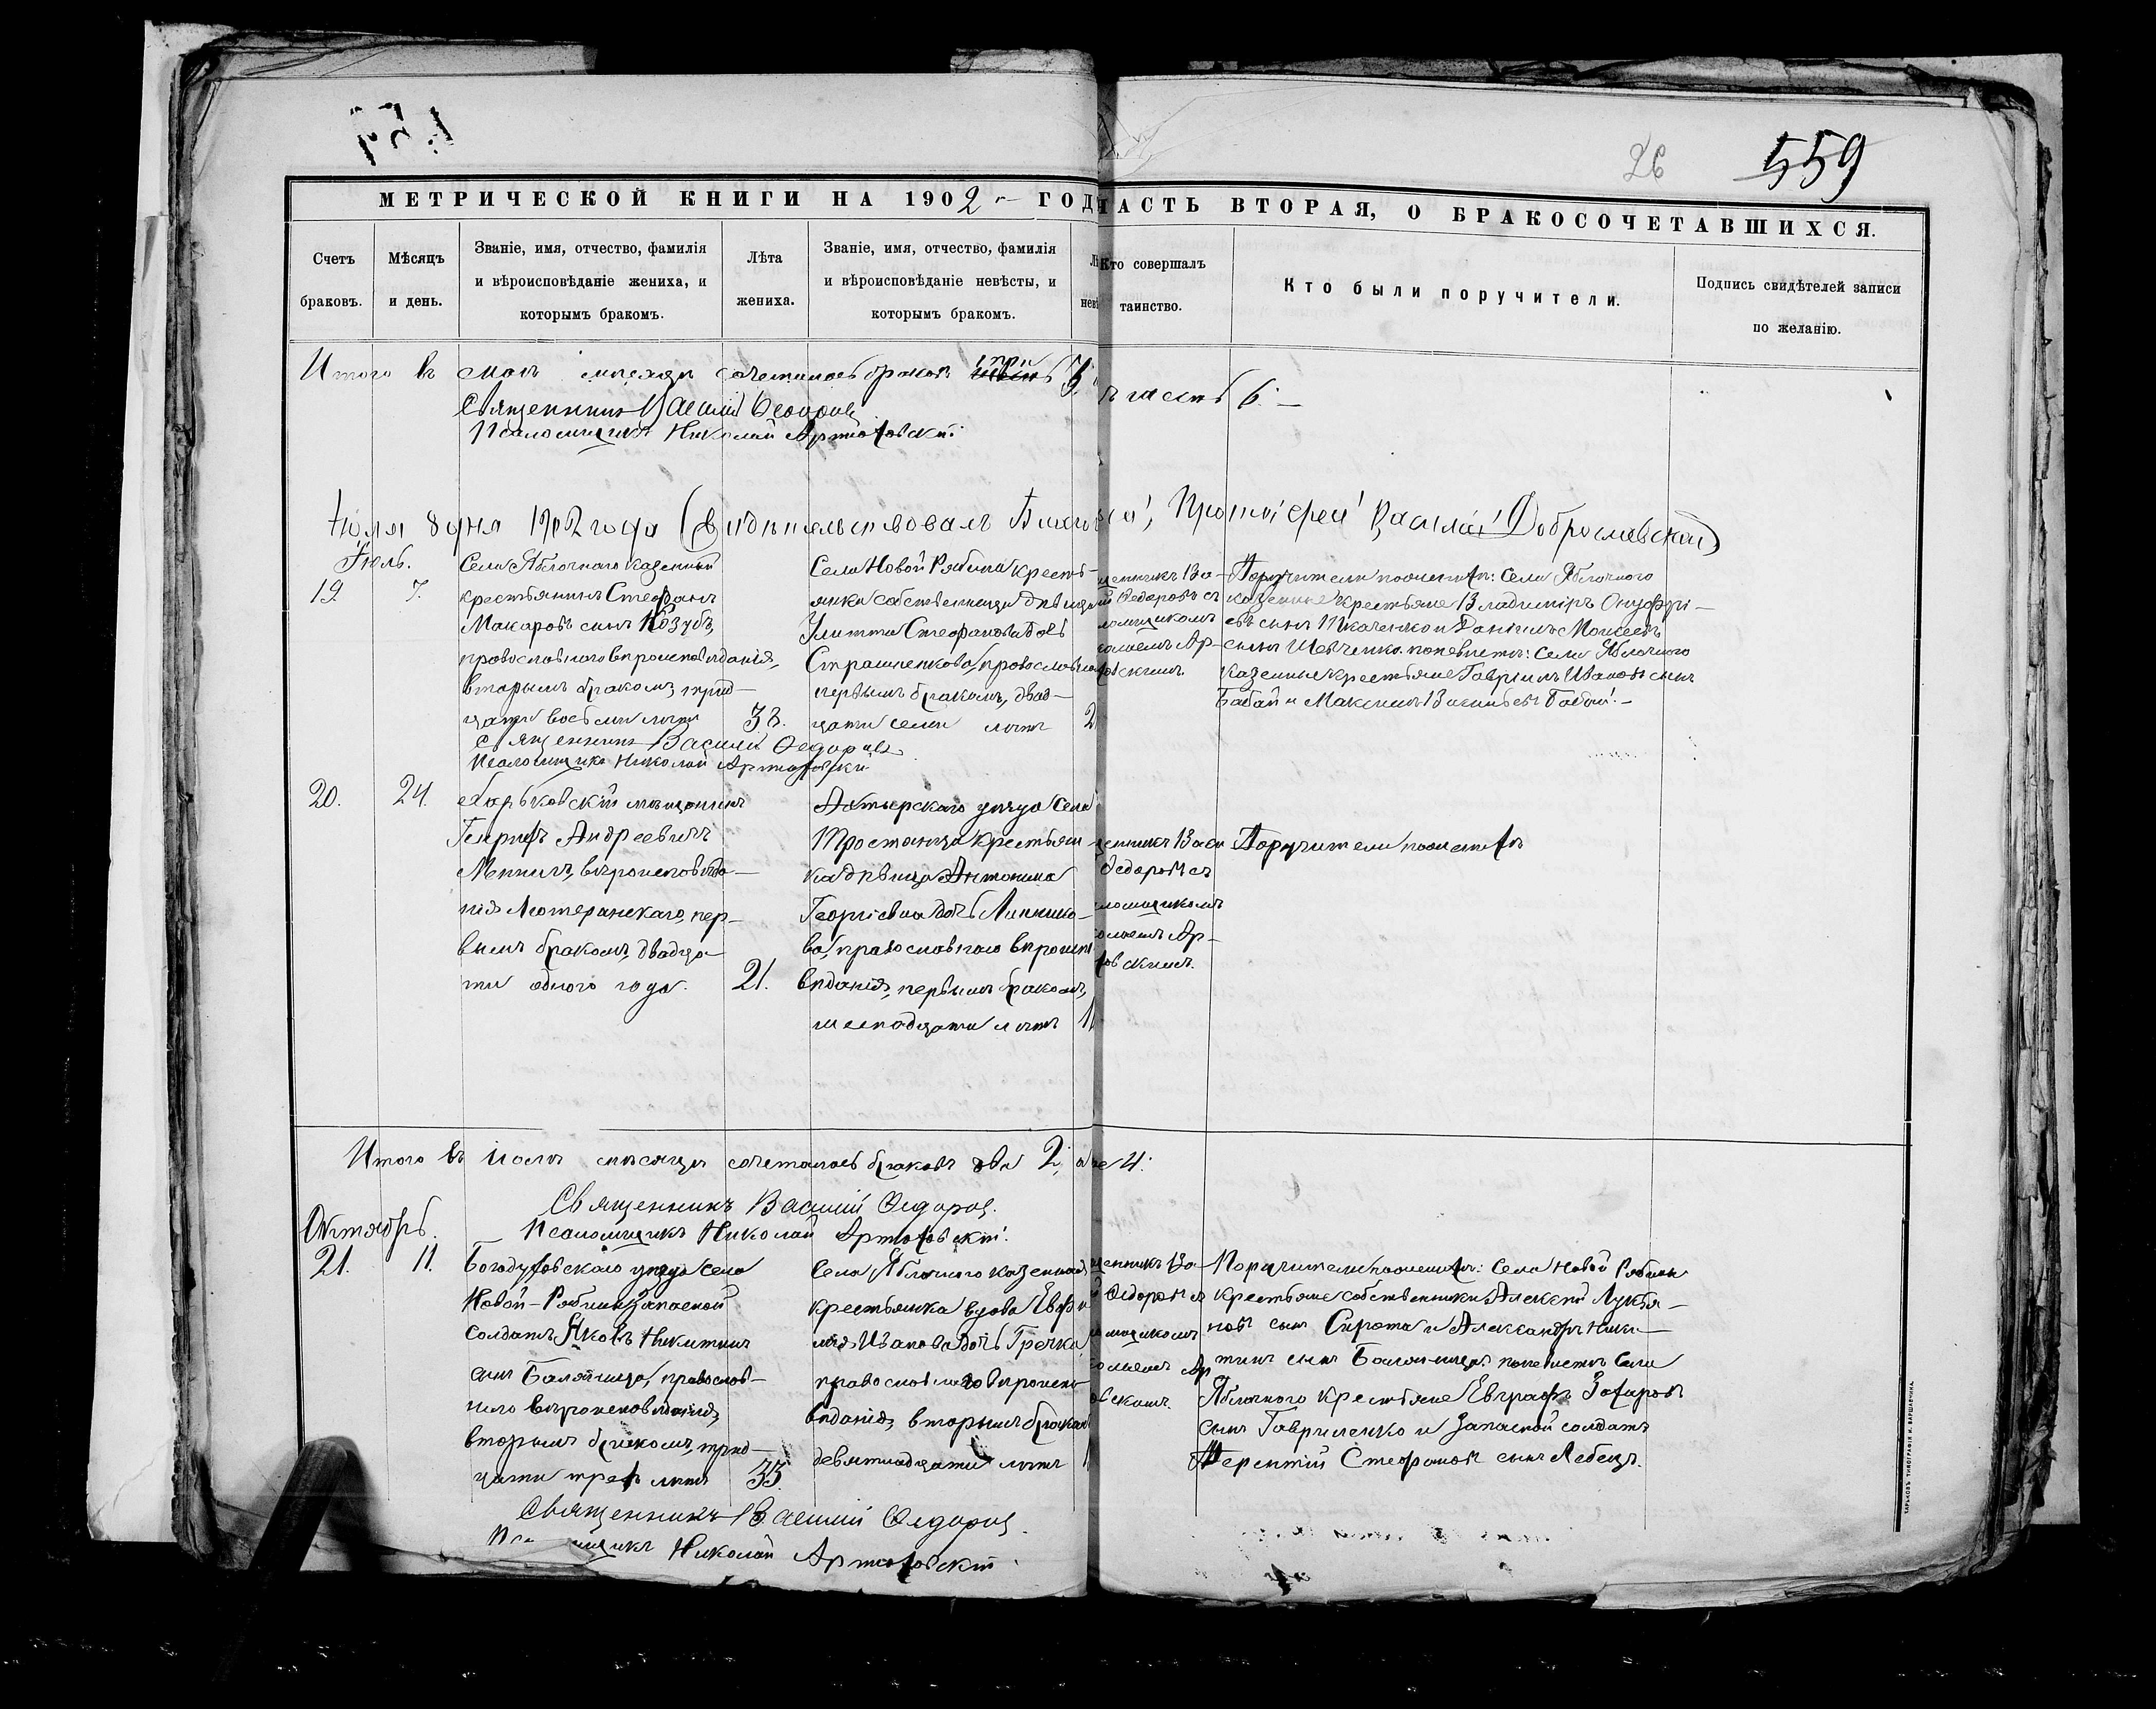 559
26
МЕТРИЧЕСКОЙ КНИГИ НА 1902 ГОД
ЧАСТЬ ВТОРАЯ, О БРАКОСОЧЕТАВШИХСЯ.
Счетъ браковъ.
Мѣсяцъ и день.
Званіе, имя, отчество, фамилія
и вѣроисповѣданіе жениха, и
которымъ бракомъ.
Лѣта жениха.
Званіе, имя, отчество, фамилія
и вѣроисповѣданіе невѣсты, и
которымъ бракомъ.
Кто совершалъ таинство.
Кто были поручители.
Подпись свидѣтелей записи
по желанію.
Итого въ маѣ мѣсяцѣ сочеталось браковъ три
6.
Священникъ Василій Ѳедоровъ
Псаломщикъ Николай Артюховскій
Іюля 8 дня 1902 года Свидѣтельствовалъ
Протоіерей Василій Доброславскій
Іюль.
19.
7.
Села Яблочнаго казенный
крестьянинъ Стефанъ
Макаровъ сынъ Козубъ,
православнаго вѣроисповѣданія,
вторымъ бракомъ, трид-
цати восьми лѣтъ
38.
Села Новой Рябины кресть-
янка собственница дѣвица
Улитта Стефанова дочь
православна
первымъ бракомъ, двад-
цати семи лѣтъ
2
щенникъ Ва-
Ѳедоровъ съ
ломщикомъ
колаемъ Ар-
ховскимъ.
Поручители по женихѣ: Села Яблочного
казенные крестьяне Владиміръ Онуфрі-
евъ сынъ Ткаченко и Даніилъ Моисеевъ
сынъ Шевченко. по невѣстѣ: Села Яблочного
казенные крестьяне Гавріилъ Ивановъ сынъ
Бабай и Максимъ Васильевъ Бабай.
Священникъ Василій Ѳедоровъ
Псаломщикъ Николай Артюховскій
20.
24.
Харьковскій мѣщанинъ
Андреевичъ
вѣроисповѣда-
нія Лютеранскаго, пер-
вымъ бракомъ, двадца-
ти одного года.
21.
Ахтырскаго уѣзда Села
Тростянца крестьян-
ка дѣвица Антонина
Георгіевна дочь Линнико-
ва, православнаго вѣроиспо
вѣданія, первымъ бракомъ,
шестнадцати лѣтъ
1
щенникъ Васи
Ѳедоровъ съ
ломщикомъ
колаемъ Ар-
ховскимъ.
Поручители по женихѣ
Итого въ іюлѣ мѣсяцѣ сочеталось браковъ два 2,
4.
Священникъ Василій Ѳедоровъ.
Псаломщикъ Николай Артюховскій.
Октябрь.
21.
11.
Богодуховскаго уѣзда села
Новой-Рябины запасной
солдатъ Яковъ Никитинъ
сынъ православ-
наго вѣроисповѣданія,
вторымъ бракомъ, трид-
цати трехъ лѣтъ
33.
Села Яблочного казенная
крестьянка вдова Евфи
мія Иванова дочь Гречка
православнаго вѣроиспо
вѣданія, вторымъ бракомъ
девятнадцати лѣтъ
1
щенникъ Ва-
Ѳедоровъ съ
ломщикомъ
колаемъ Ар
овскимъ.
Поручители по женихѣ: Села Новой Рябины
крестьяне собственники Алексѣй Лукья-
новъ сынъ Сирота и Александръ Ники-
тинъ сынъ по невѣстѣ Села
Яблочного крестьяне Евграфъ Захаровъ
сынъ Гавриленко и запасной солдатъ
Терентій Стефановъ сынъ Лебедь.
Священникъ Василій Ѳедоровъ.
Николай Артюховскій.
ХАРЬКОВЪ ТИПОГРАФІЯ И. ВАРШАВЧИКА.